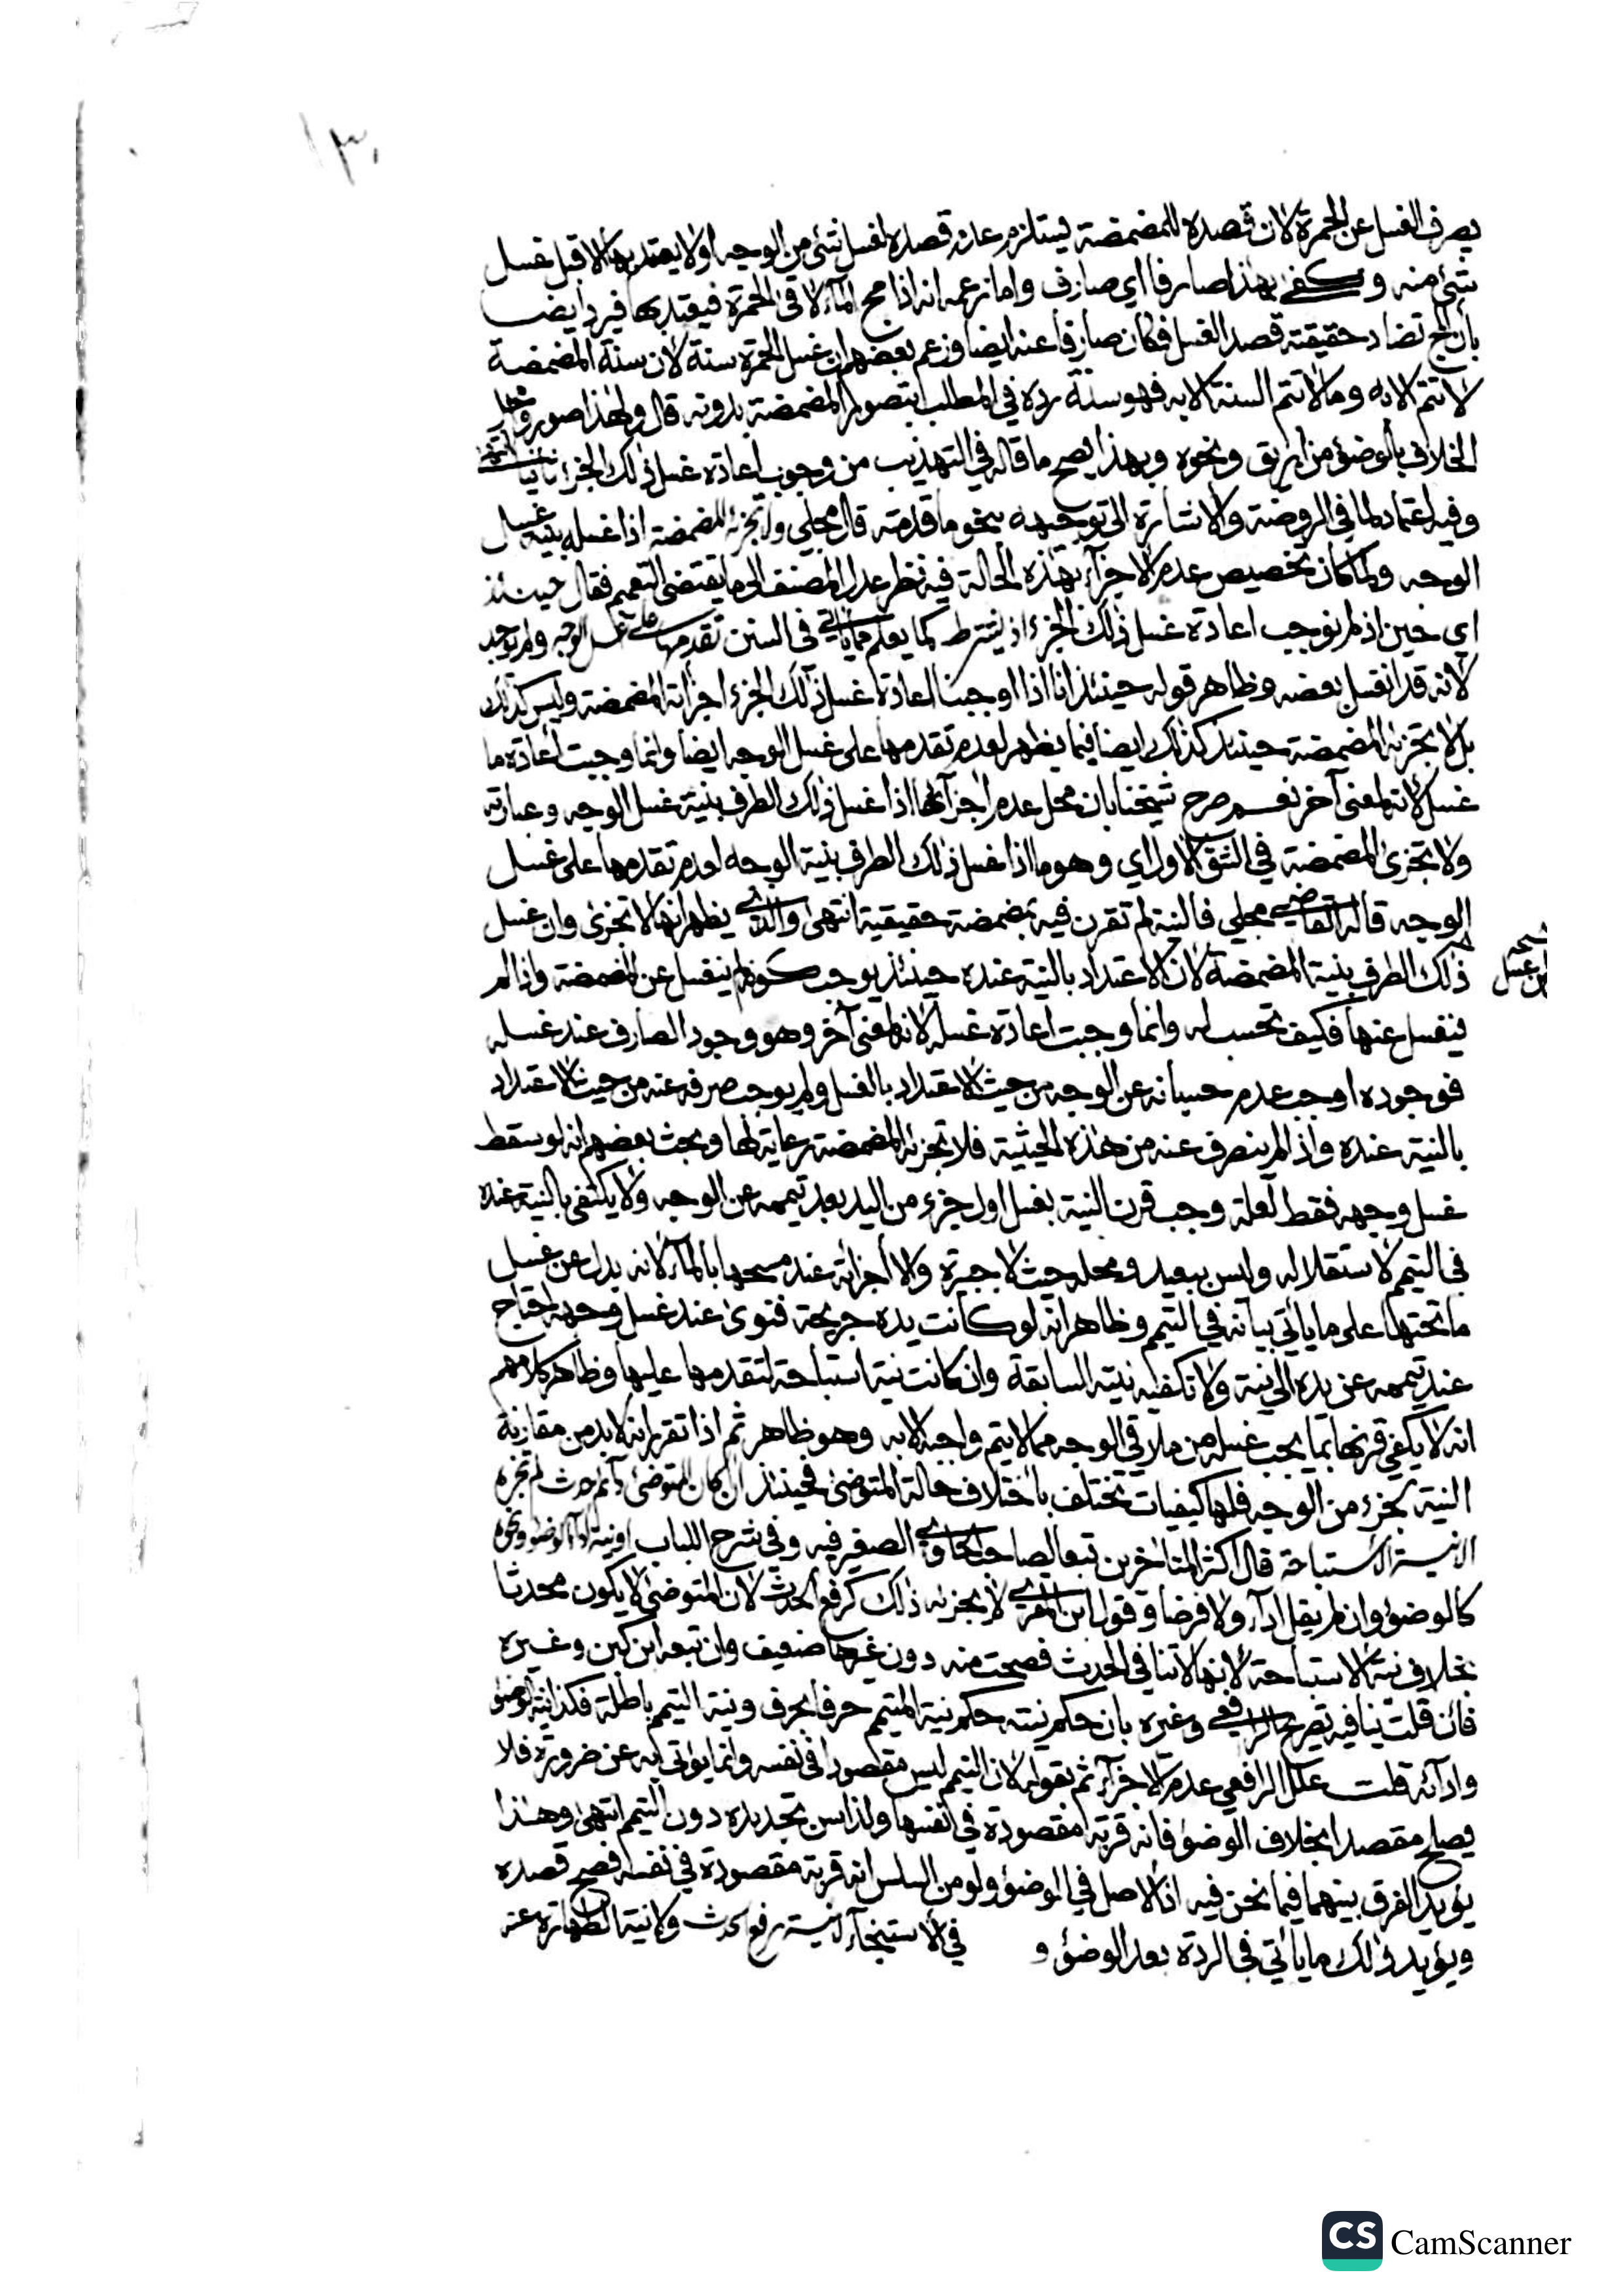 ١٣٠
يصرف الغسل عن الحمرة لان قصده للمضمضة يستلزم عدم قصده لغسل شئ من الوجه اولا يعتد بها الا قبل غسل
شئ منه وكفى بهذا صارفا اي صارف واما زعمه انه اذا مج الماء لاقى الحمرة فيعتد بها فيرد ايضـــا
بأن المج تضاد حقيقته قصد الغسل فكان صارفا عنه ايضا وزعم بعضهم ان غسل الحمرة سنة لان سنة المضمضة
لا تتم الا به وما لا تتم السنة الا به فهو سنة رده في المطلب بتصور المضمضة بدونه قال ولهذا صوروا محل
الخلاف بالوضوء من ابريق ونحوه وبهذا يصح ما قاله في التهذيب من وجوب اعادة غسل ذلك الجزء ثانيا
وفيه اعتماد لما في الروضة والاشارة الى توجيهه بنحو ما قدمته قال مجلي ولا تجزئه المضمضة اذا غسله بنية غسل
الوجه ولما كان تخصيص عدم الاجزاء بهذه الحالة فيه نظر عدل المصنف الى ما يقتضي التعميم فقال حينئذ
اي حين اذ لم نوجب اعادة غسل ذلك الجزء اذ يشترط كما يعلم مما يأتي في السنن تقدمها على غسل الوجه ولم يوجد
لانه قد انغسل بعضه وظاهر قوله حينئذ انا اذا اوجبنا اعادة غسل ذلك الجزء اجزأته المضمضة وليس كذلك
بل لا تجزئه المضمضة حينئذ كذلك ايضا فيما يظهر لعدم تقدمها على غسل الوجه ايضا وانما وجبت اعادة ما
غسل لانه لمعنى آخر نعم صرح شيخنا بان محل عدم اجزائها اذا غسل ذلك الطرف بنية غسل الوجه وعبارته
ولا تجزئ المضمضة في الشق الاول اي وهو ما اذا غسل ذلك الطرف بنية الوجه لعدم تقدمها على غسل
الوجه قاله القاضي مجلي فالنية لم تقرن فيه بمضمضة حقيقية انتهى والذي يظهر انها لا تجزئ وان غسل
ذلك الطرف بنية المضمضة لان الاعتداد بالنية عنده حينئذ يوجب كونه لم ينغسل عن المضمضة واذا لم
ينغسل عنها فكيف تحسب له وانما وجبت اعادة غسله لانه لمعنى آخر وهو وجود الصارف عند غسله
فوجوده اوجب عدم حسبانه عن الوجه من حيث الاعتداد بالغسل ولم يوجب صرفه عنه من حيث الاعتداد
بالنية عنده واذا لم ينصرف عنه من هذه الحيثية فلا تجزئه المضمضة رعاية لها وبحث بعضهم انه لو سقط
غسل وجهه فقط لعلة وجب قرن النية بغسل اول جزء من اليد بعد تيممه عن الوجه ولا يكتفى بالنية عنده
في التيمم لاستقلاله وليس ببعيد ومحله حيث لا جبيرة والا اجزأته عند مسحها بالماء لانه بدل عن غسل
ما تحتها على ما يأتي بيانه في التيمم وظاهر انه لو كانت يده جريحة فنوى عند غسل وجهه احتاج
عند تيممه عن يده الى نية ولا تكفيه نيته السابقة وان كانت نية استباحة لتقدمها عليها وظاهر كلامهم
انه لا يكفي قرنها بما يجب غسله من ملاقي الوجه مما لا يتم واجبه الا به وهو ظاهر ثم اذا تقرر انه لا بد من مقارنة
النية بجزء من الوجه فلها كيفيات تختلف باختلاف حالة المتوضئ فحينئذ ان كان المتوضئ دائم حدث لم تجزه
الا نيــة الاستباحة قال اكثر المتأخرين تبعا لصاحب الحاوي الصغير فيه وفي شرح اللباب او نية اداء الوضوء ونحوه
كالوضوء وان لم يقل اداء ولا فرضا وقول ابن المقري لا يجزئه ذلك كرفع الحدث لان المتوضئ لا يكون محدثا
بخلاف نية الاستباحة لانها لا تنافي الحدث فصحت منه دون غيرها ضعيف وان تبعه ابن كبن وغيره
فان قلت ينافيه تصريح الرافعي وغيره بان حكم نيته حكم نية المتيمم حرفا بحرف ونية التيمم باطلة فكذا نية الوضوء
وادائه قلت علل الرافعي عدم الاجزاء ثم بقوله لان التيمم ليس مقصودا في نفسه وانما يؤتى به عن ضرورة فلا
يصلح مقصدا بخلاف الوضوء فانه قربة مقصودة في نفسها ولذا سن تجديده دون التيمم انتهى وهذا
يؤيد الفرق بينهما فيما نحن فيه اذ الاصل في الوضوء ولو من السلس انه قربة مقصودة في نفسه فصح قصده
ويؤيد ذلك ما يأتي في الردة بعد الوضوء و في الاستنجاء لا نيــة رفع الحدث ولا نية الطهارة عنه
نسخة
غسل
CamScanner